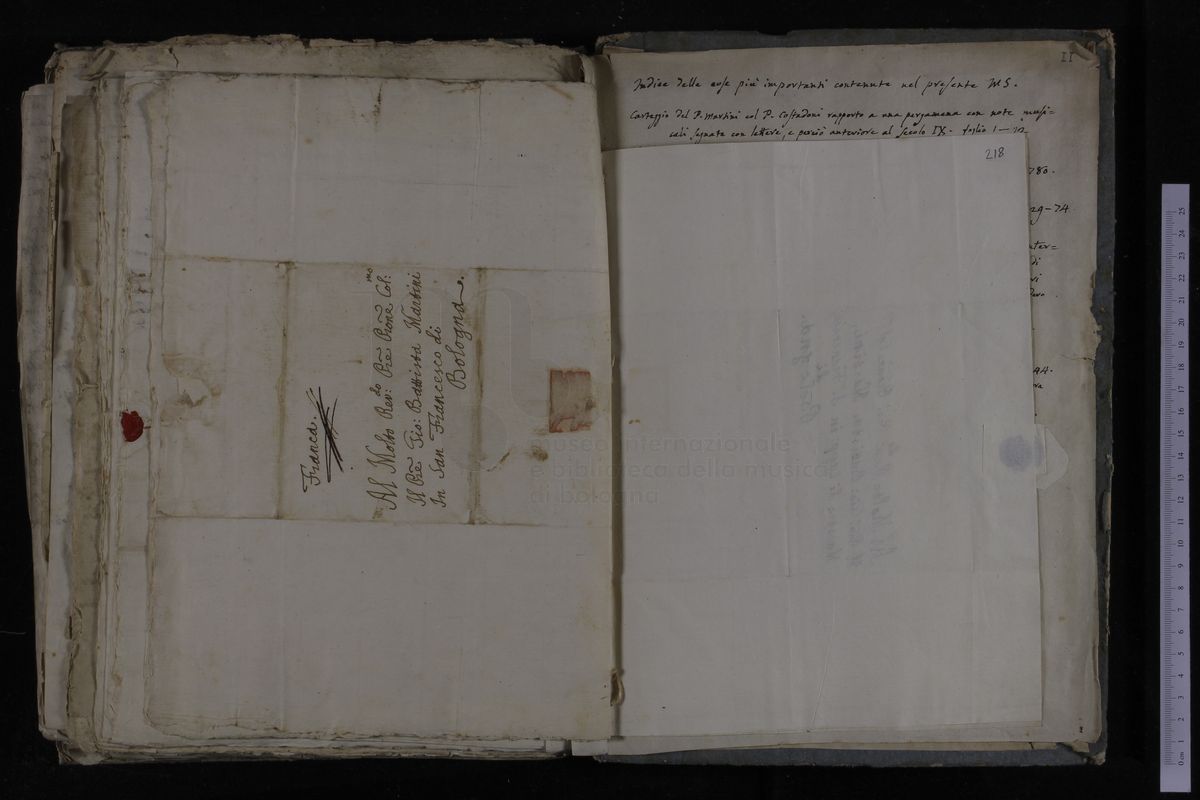 Franca.
Al Molto Rev:do Pre Prone Col:mo
Il Pre Gio: Battista Martini
In San Francesco di
Bologna.
II
Indice delle cose più importanti contenute nel presente M.S.
Carteggio del P. Martini col P. Costadoni rapporto a una pergamena con note musi-
cali segnate con lettere, e perciò anteriore al secolo IX. foglio 1 — 22
218
780.
29-74
94.
museo internazionale
e biblioteca della musica
di bologna
0 cm 1 2 3 4 5 6 7 8 9 10 11 12 13 14 15 16 17 18 19 20 21 22 23 24 25